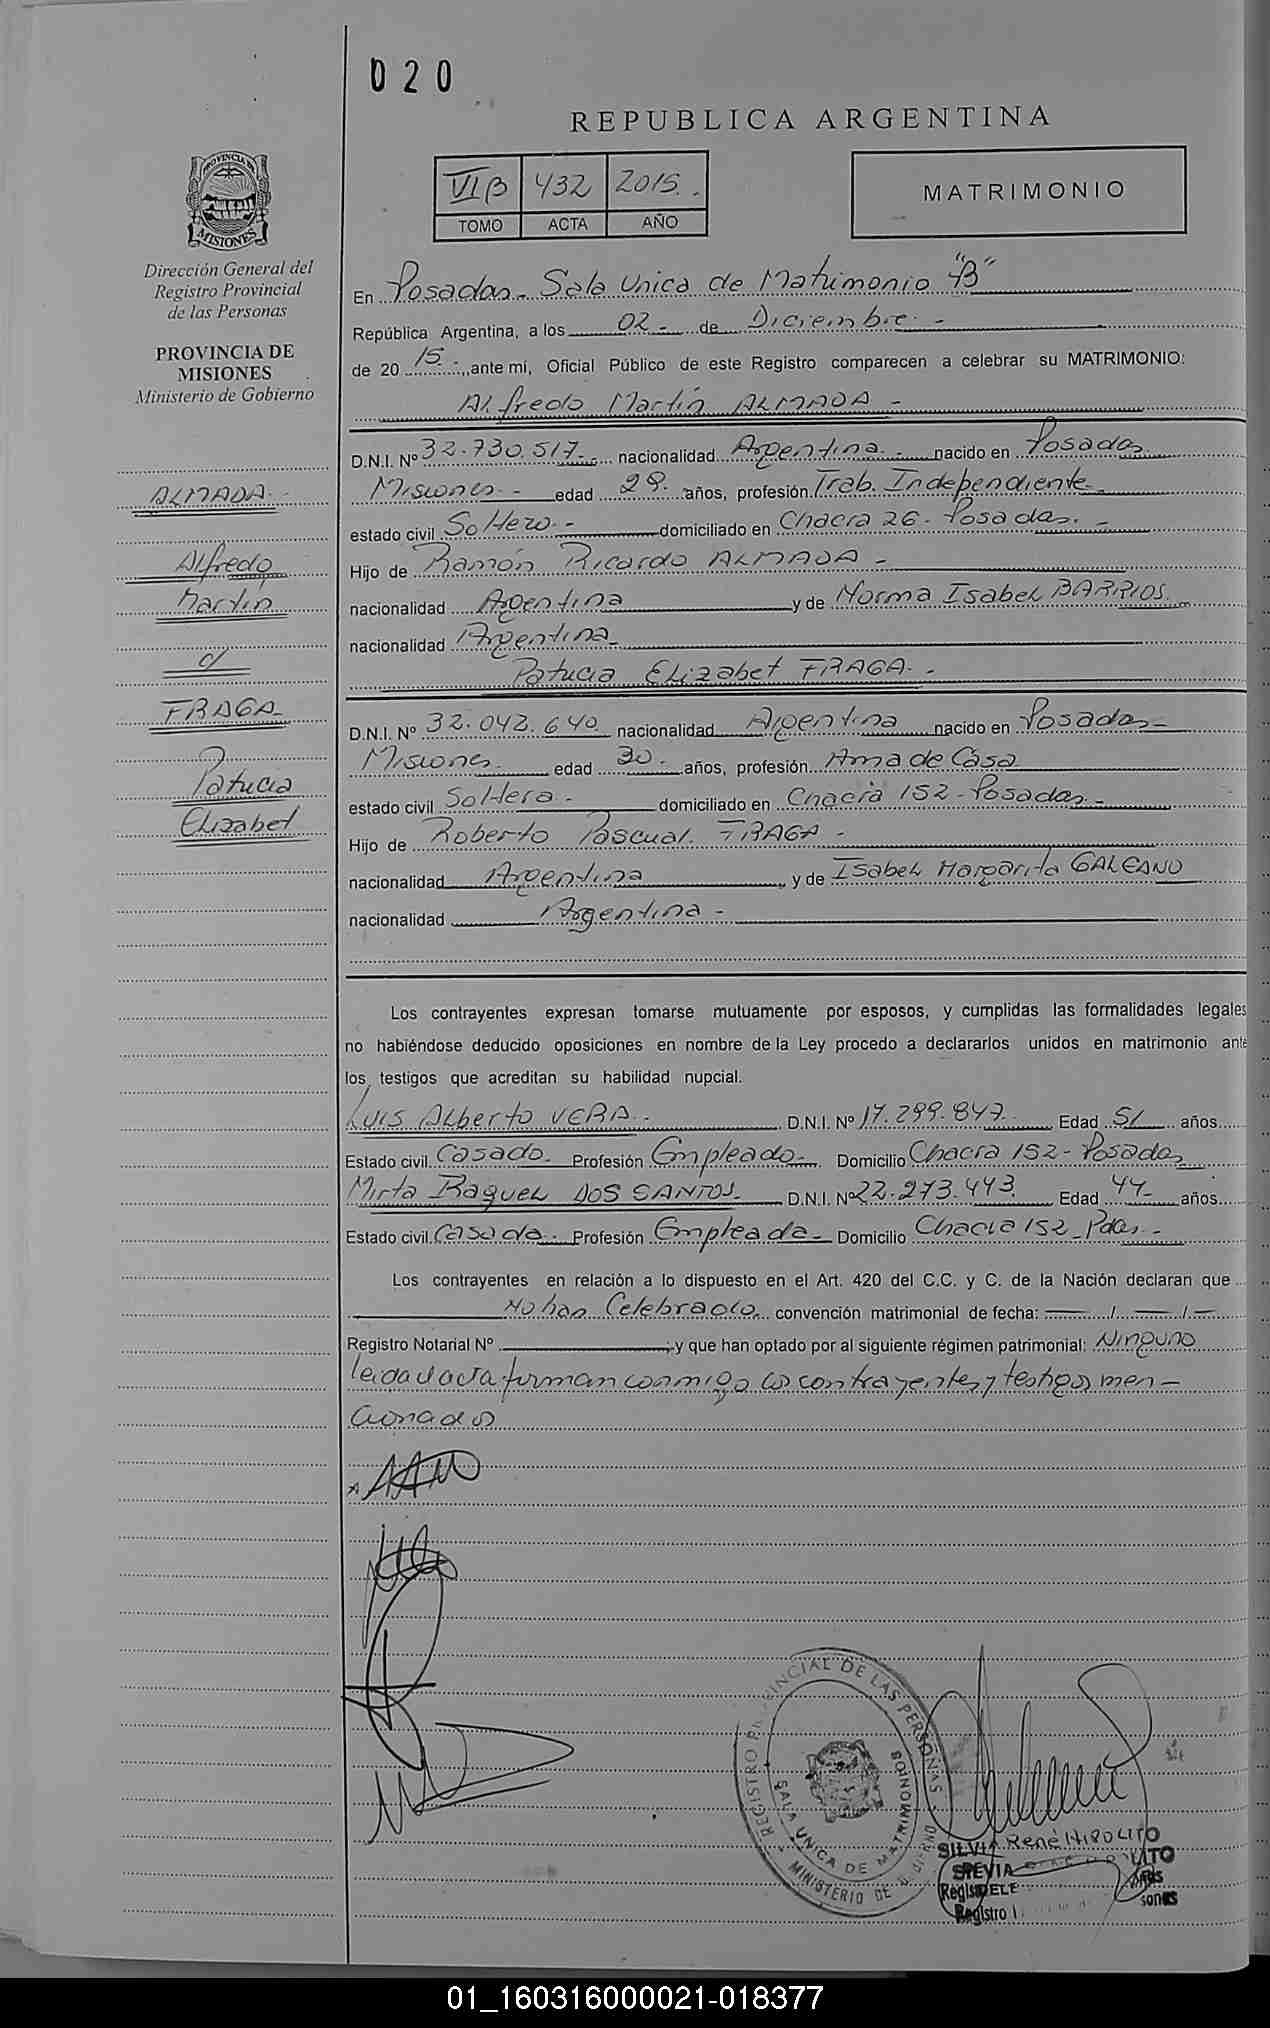 020
REPUBLICA ARGENTINA
VI B 432 2015.
TOMO ACTA AÑO
MATRIMONIO
PROVINCIA DE
MISIONES
Dirección General del
Registro Provincial
de las Personas
PROVINCIA DE
MISIONES
Ministerio de Gobierno
ALMADA
Alfredo
Martín
c/
FRAGA
Patricia
Elizabet
En Posadas - Sala Unica de Matrimonio "B"
República Argentina, a los 02 - de Diciembre -
de 20 15 - ,ante mí, Oficial Público de este Registro comparecen a celebrar su MATRIMONIO:
Alfredo Martín ALMADA -
D.N.I. Nº 32.730.517 - nacionalidad Argentina - nacido en Posadas
Misiones - edad 29 - años, profesión Trab. Independiente
estado civil Soltero - domiciliado en Chacra 26 - Posadas. -
Hijo de Ramón Ricardo ALMADA -
nacionalidad Argentina y de Norma Isabel BARRIOS
nacionalidad Argentina
Patricia Elizabet FRAGA -
D.N.I. Nº 32.042.640 nacionalidad Argentina nacido en Posadas -
Misiones edad 30 - años, profesión Ama de Casa
estado civil Soltera - domiciliado en Chacra 152 - Posadas -
Hijo de Roberto Pascual FRAGA -
nacionalidad Argentina , y de Isabel Margarita GALEANO
nacionalidad Argentina -
Los contrayentes expresan tomarse mutuamente por esposos, y cumplidas las formalidades legales
no habiéndose deducido oposiciones en nombre de la Ley procedo a declararlos unidos en matrimonio ante
los testigos que acreditan su habilidad nupcial.
Luis Alberto VERA - D.N.I. Nº 17.299.847 Edad 51 años
Estado civil Casado - Profesión Empleado - Domicilio Chacra 152 - Posadas
Mirta Raquel DOS SANTOS D.N.I. Nº 22.273.443 Edad 44 años
Estado civil Casada - Profesión Empleada - Domicilio Chacra 152 - Pdas. -
Los contrayentes en relación a lo dispuesto en el Art. 420 del C.C. y C. de la Nación declaran que
No han Celebrado convención matrimonial de fecha: — / — / —
Registro Notarial Nº ; y que han optado por al siguiente régimen patrimonial: Ninguno
leida el acta firman conmigo los contrayentes y testigos men-
cionados
REGISTRO PROVINCIAL DE LAS PERSONAS
SALA UNICA DE MATRIMONIOS
MINISTERIO DE GOBIERNO
SILVIA René HIPOLITO
Registro
01_160316000021-018377